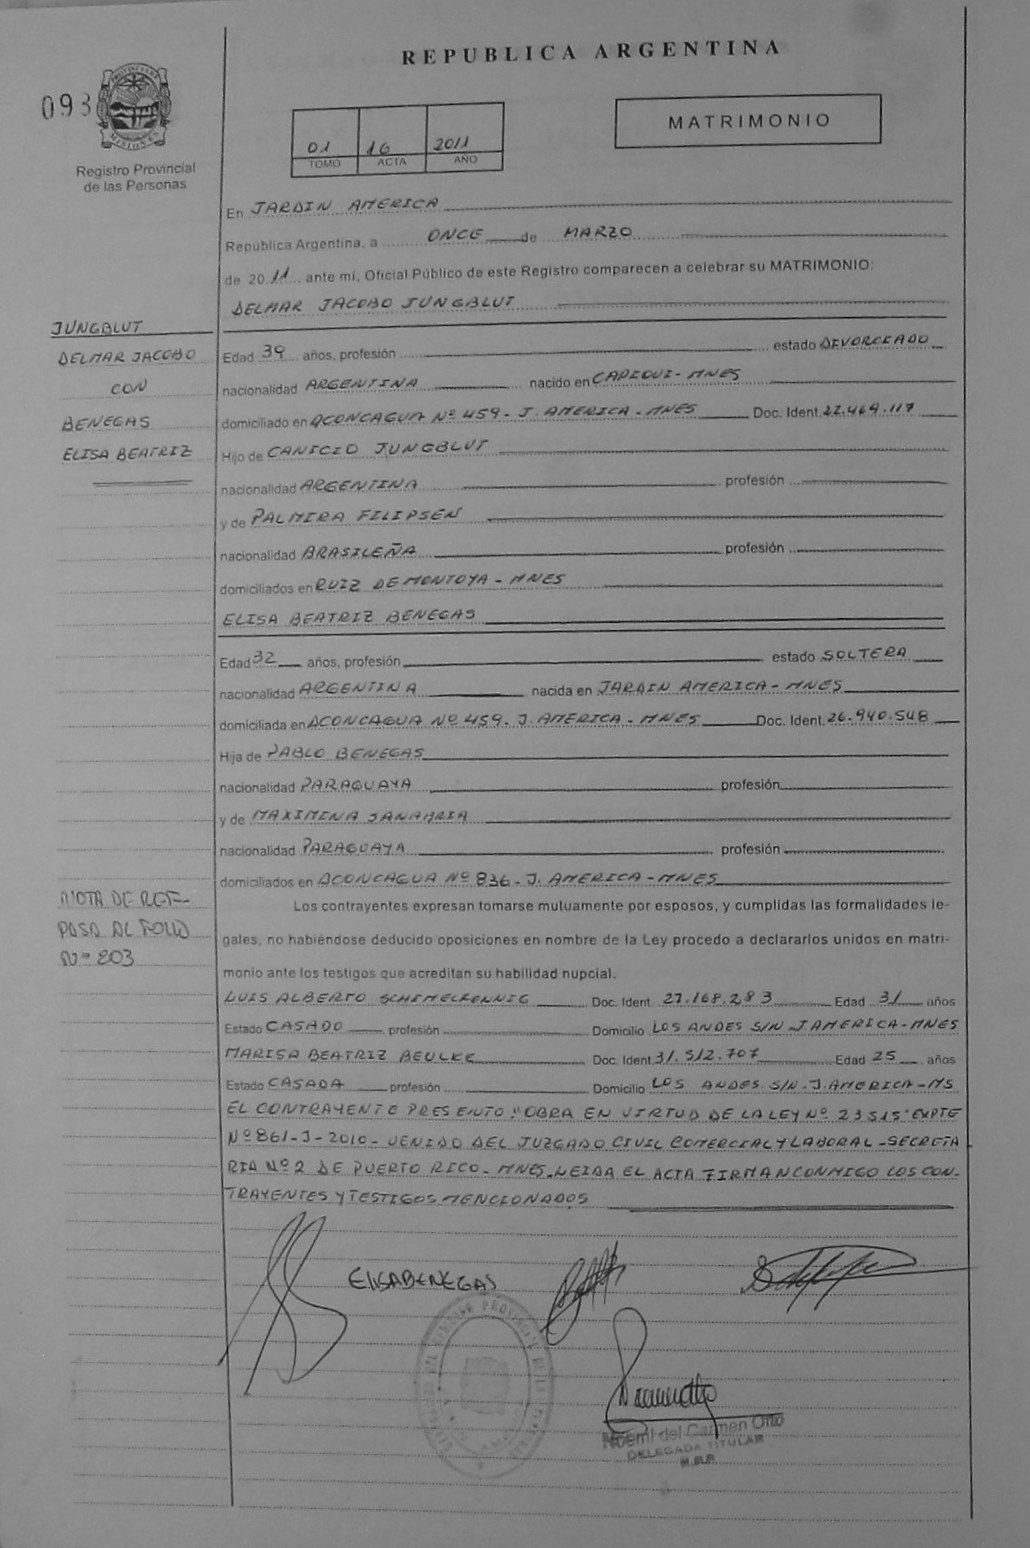 REPUBLICA ARGENTINA
093
PROVINCIA DE MISIONES
Registro Provincial
de las Personas
01 16 2011
TOMO ACTA AÑO
MATRIMONIO
En JARDIN AMERICA
República Argentina, a ONCE de MARZO
de 2011, ante mí, Oficial Público de este Registro comparecen a celebrar su MATRIMONIO:
DELMAR JACOBO JUNGBLUT
JUNGBLUT
DELMAR JACOBO
CON
BENEGAS
ELISA BEATRIZ
Edad 39 años, profesión estado DIVORCIADO
nacionalidad ARGENTINA nacido en CAPIOVI - MNES
domiciliado en ACONCAGUA Nº 459 - J. AMERICA - MNES Doc. Ident. 22.469.117
Hijo de CANICIO JUNGBLUT
nacionalidad ARGENTINA profesión
y de PALMIRA FILIPSEN
nacionalidad BRASILEÑA profesión
domiciliados en RUIZ DE MONTOYA - MNES
ELISA BEATRIZ BENEGAS
Edad 32 años, profesión estado SOLTERA
nacionalidad ARGENTINA nacida en JARDIN AMERICA - MNES
domiciliada en ACONCAGUA Nº 459. J. AMERICA - MNES Doc. Ident. 26.940.548
Hija de PABLO BENEGAS
nacionalidad PARAGUAYA profesión
y de MAXIMINA SANABRIA
nacionalidad PARAGUAYA profesión
domiciliados en ACONCAGUA Nº 836 - J. AMERICA - MNES
NOTA DE REF-
PASA AL FOLIO
Nº 203
Los contrayentes expresan tomarse mutuamente por esposos, y cumplidas las formalidades le-
gales, no habiéndose deducido oposiciones en nombre de la Ley procedo a declararlos unidos en matri-
monio ante los testigos que acreditan su habilidad nupcial.
LUIS ALBERTO SCHIMELFENNIG Doc. Ident. 27.168.283 Edad 31 años
Estado CASADO profesión Domicilio LOS ANDES S/N J AMERICA - MNES
MARISA BEATRIZ BEULKE Doc. Ident. 31.512.707 Edad 25 años
Estado CASADA profesión Domicilio LOS ANDES S/N - J. AMERICA - MS
EL CONTRAYENTE PRESENTO "OBRA EN VIRTUD DE LA LEY Nº 23515" EXPTE
Nº 861 - J - 2010 - VENIDO DEL JUZGADO CIVIL COMERCIAL Y LABORAL - SECRETA
RIA Nº 2 DE PUERTO RICO - MNES - LEIDA EL ACTA FIRMAN CONMIGO LOS CON-
TRAYENTES Y TESTIGOS MENCIONADOS
ELISA BENEGAS
Noemi del Carmen Otto
DELEGADA TITULAR